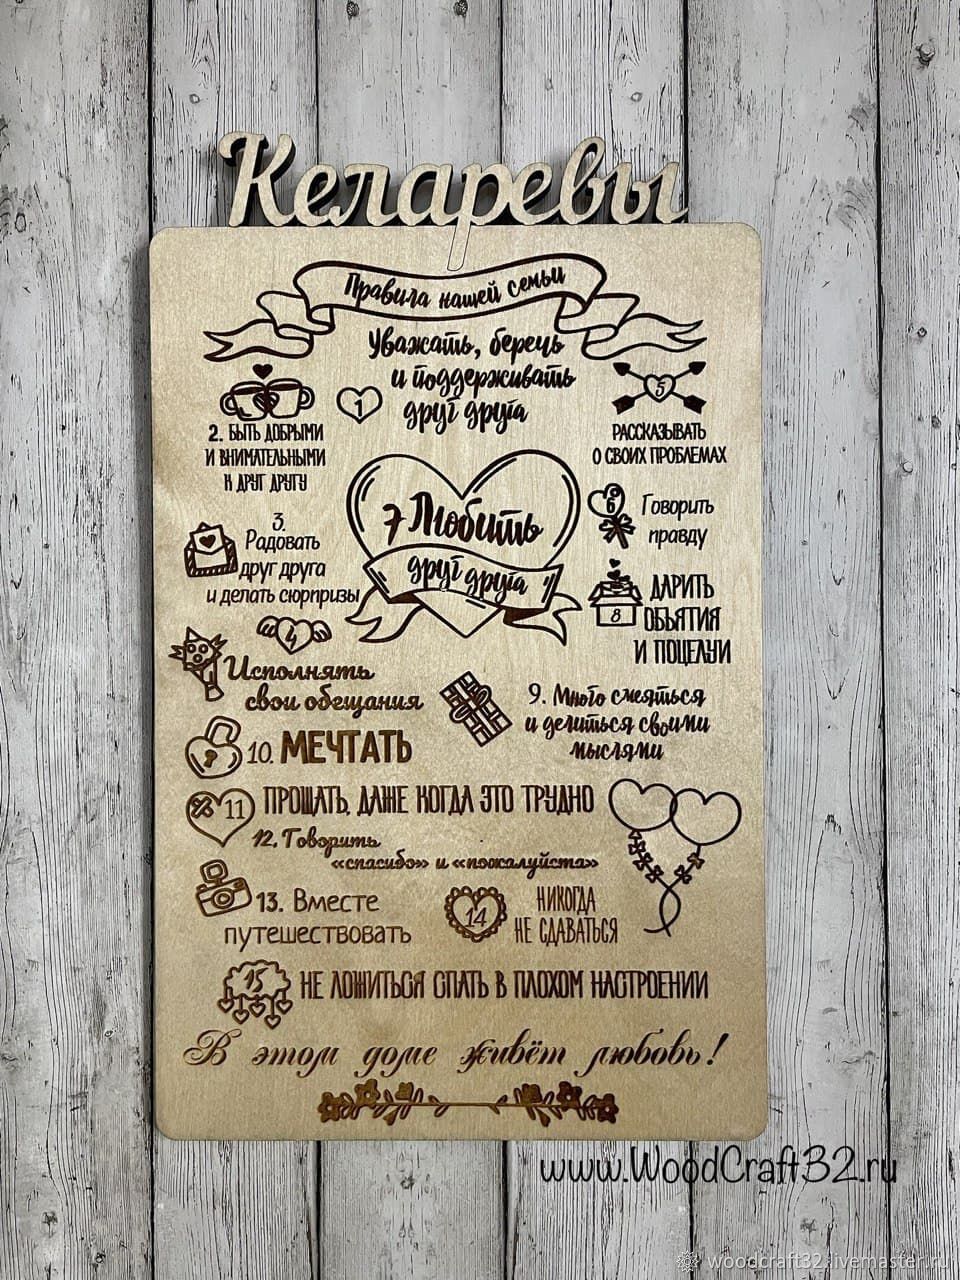 Келаревы
Правила нашей семьи
Уважать, беречь
и поддерживать
1 друг друга
2. БЫТЬ ДОБРЫМИ
И ВНИМАТЕЛЬНЫМИ
К ДРУГ ДРУГУ
5
РАССКАЗЫВАТЬ
О СВОИХ ПРОБЛЕМАХ
3.
Радовать
друг друга
и делать сюрпризы
7 Любить
друг друга
6 Говорить
правду
8 ДАРИТЬ
ОБЪЯТИЯ
И ПОЦЕЛУИ
4
Исполнять
свои обещания
9. Много смеяться
и делиться своими
мыслями
10. МЕЧТАТЬ
11 ПРОЩАТЬ, ДАЖЕ КОГДА ЭТО ТРУДНО
12. Говорить
«спасибо» и «пожалуйста»
13. Вместе
путешествовать
14 НИКОГДА
НЕ СДАВАТЬСЯ
15 НЕ ЛОЖИТЬСЯ СПАТЬ В ПЛОХОМ НАСТРОЕНИИ
В этом доме живёт любовь!
www.WoodCraft32.ru
woodcraft32.livemaster.ru